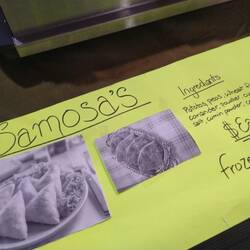 Samosa's
Ingredients
Potatoes, peas, wheat
coriander, powder,
salt, cumin powder,
froze